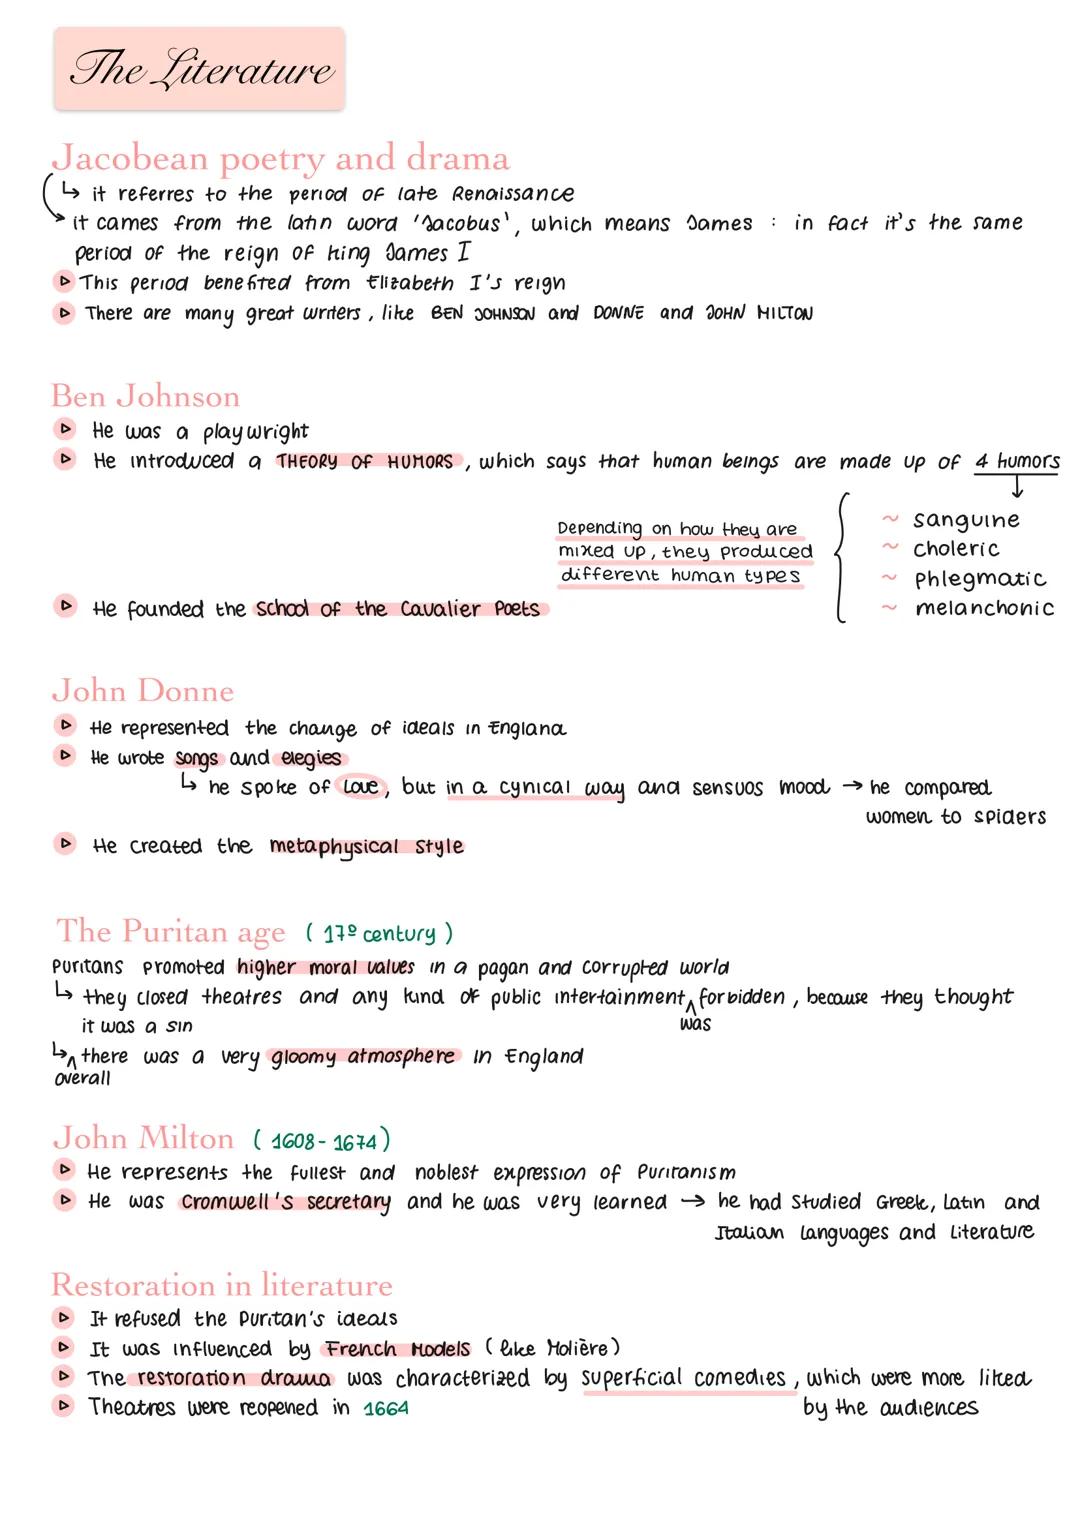 The Literature
Jacobean poetry and drama
↳ it referres to the period of late Renaissance
it cames from the latin word 'Jacobus', which means James : in fact it's the same
period of the reign of king James I
This period benefited from Elizabeth I's reign
There are many great writers, like BEN JOHNSON and DONNE and JOHN MILTON
Ben Johnson
He was a playwright
He introduced a THEORY OF HUMORS, which says that human beings are made up of 4 humors
Depending on how they are
mixed up, they produced
different human types
~ sanguine
~ choleric
~ phlegmatic
~ melanchonic
He founded the school of the Cavalier Poets
John Donne
He represented the change of ideals in England
He wrote songs and elegies
↳ he spoke of love, but in a cynical way and sensuos mood → he compared
women to spiders
He created the metaphysical style
The Puritan age (17º century)
Puritans promoted higher moral values in a pagan and corrupted world
↳ they closed theatres and any kind of public intertainment ^ forbidden, because they thought
was
it was a sin
↳ ^ there was a very gloomy atmosphere in England
overall
John Milton (1608-1674)
He represents the fullest and noblest expression of Puritanism
He was Cromwell's secretary and he was very learned → he had studied Greek, Latin and
Italian languages and literature
Restoration in literature
It refused the Puritan's ideals
It was influenced by French Models (like Molière)
The restoration drama was characterized by superficial comedies, which were more liked
by the audiences
Theatres were reopened in 1664